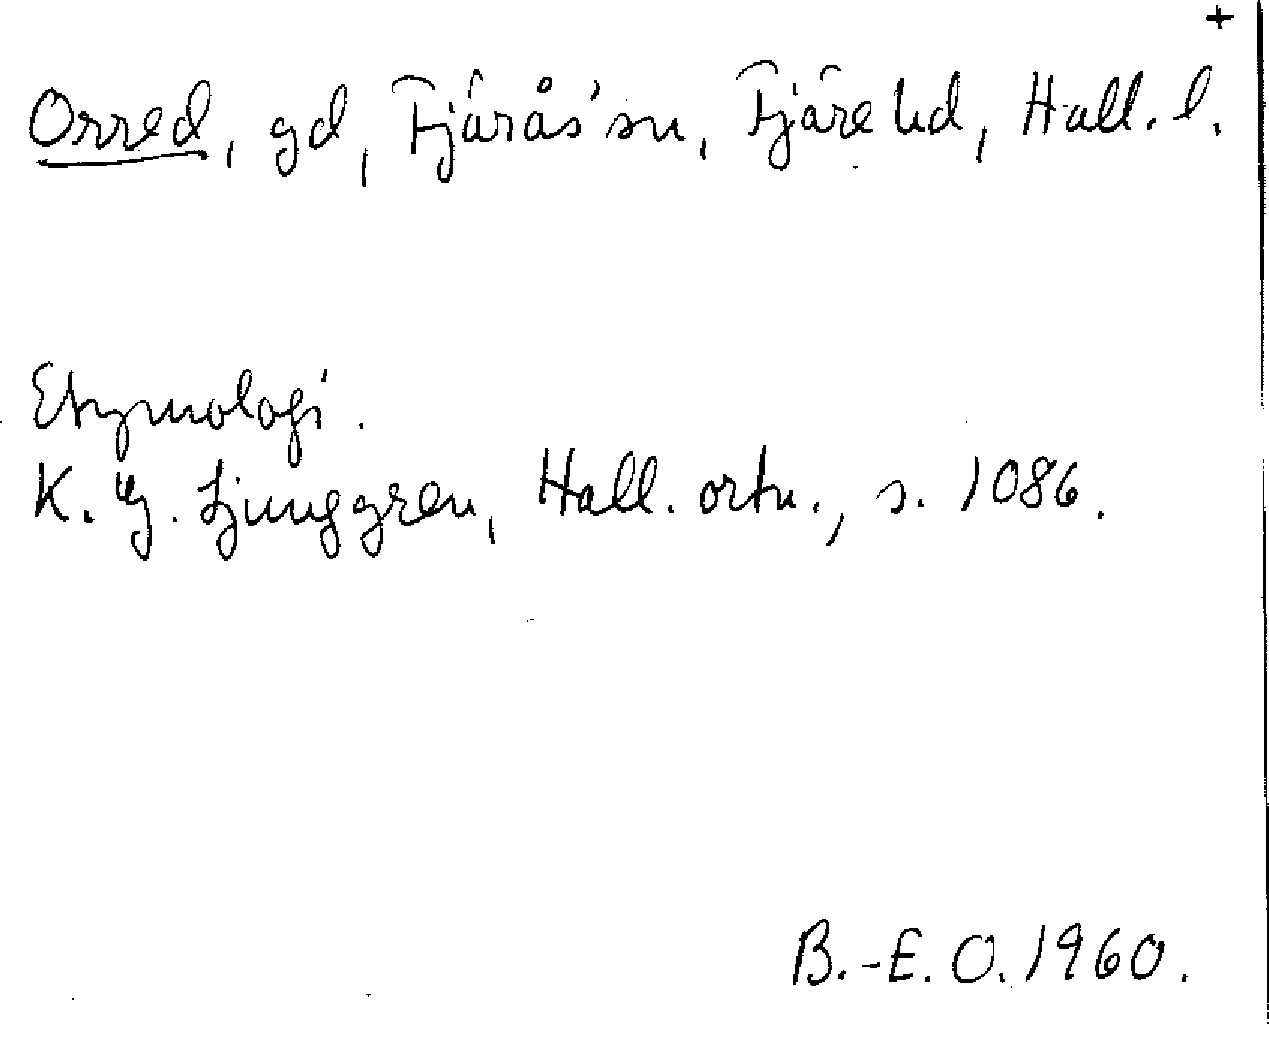 +
Orred, gd, Fjärås' sn, Fjäre hd, Hall. l.
Etymologi.
K. G. Ljunggren, Hall. ortn., s. 1086.
B.-E. O. 1960.